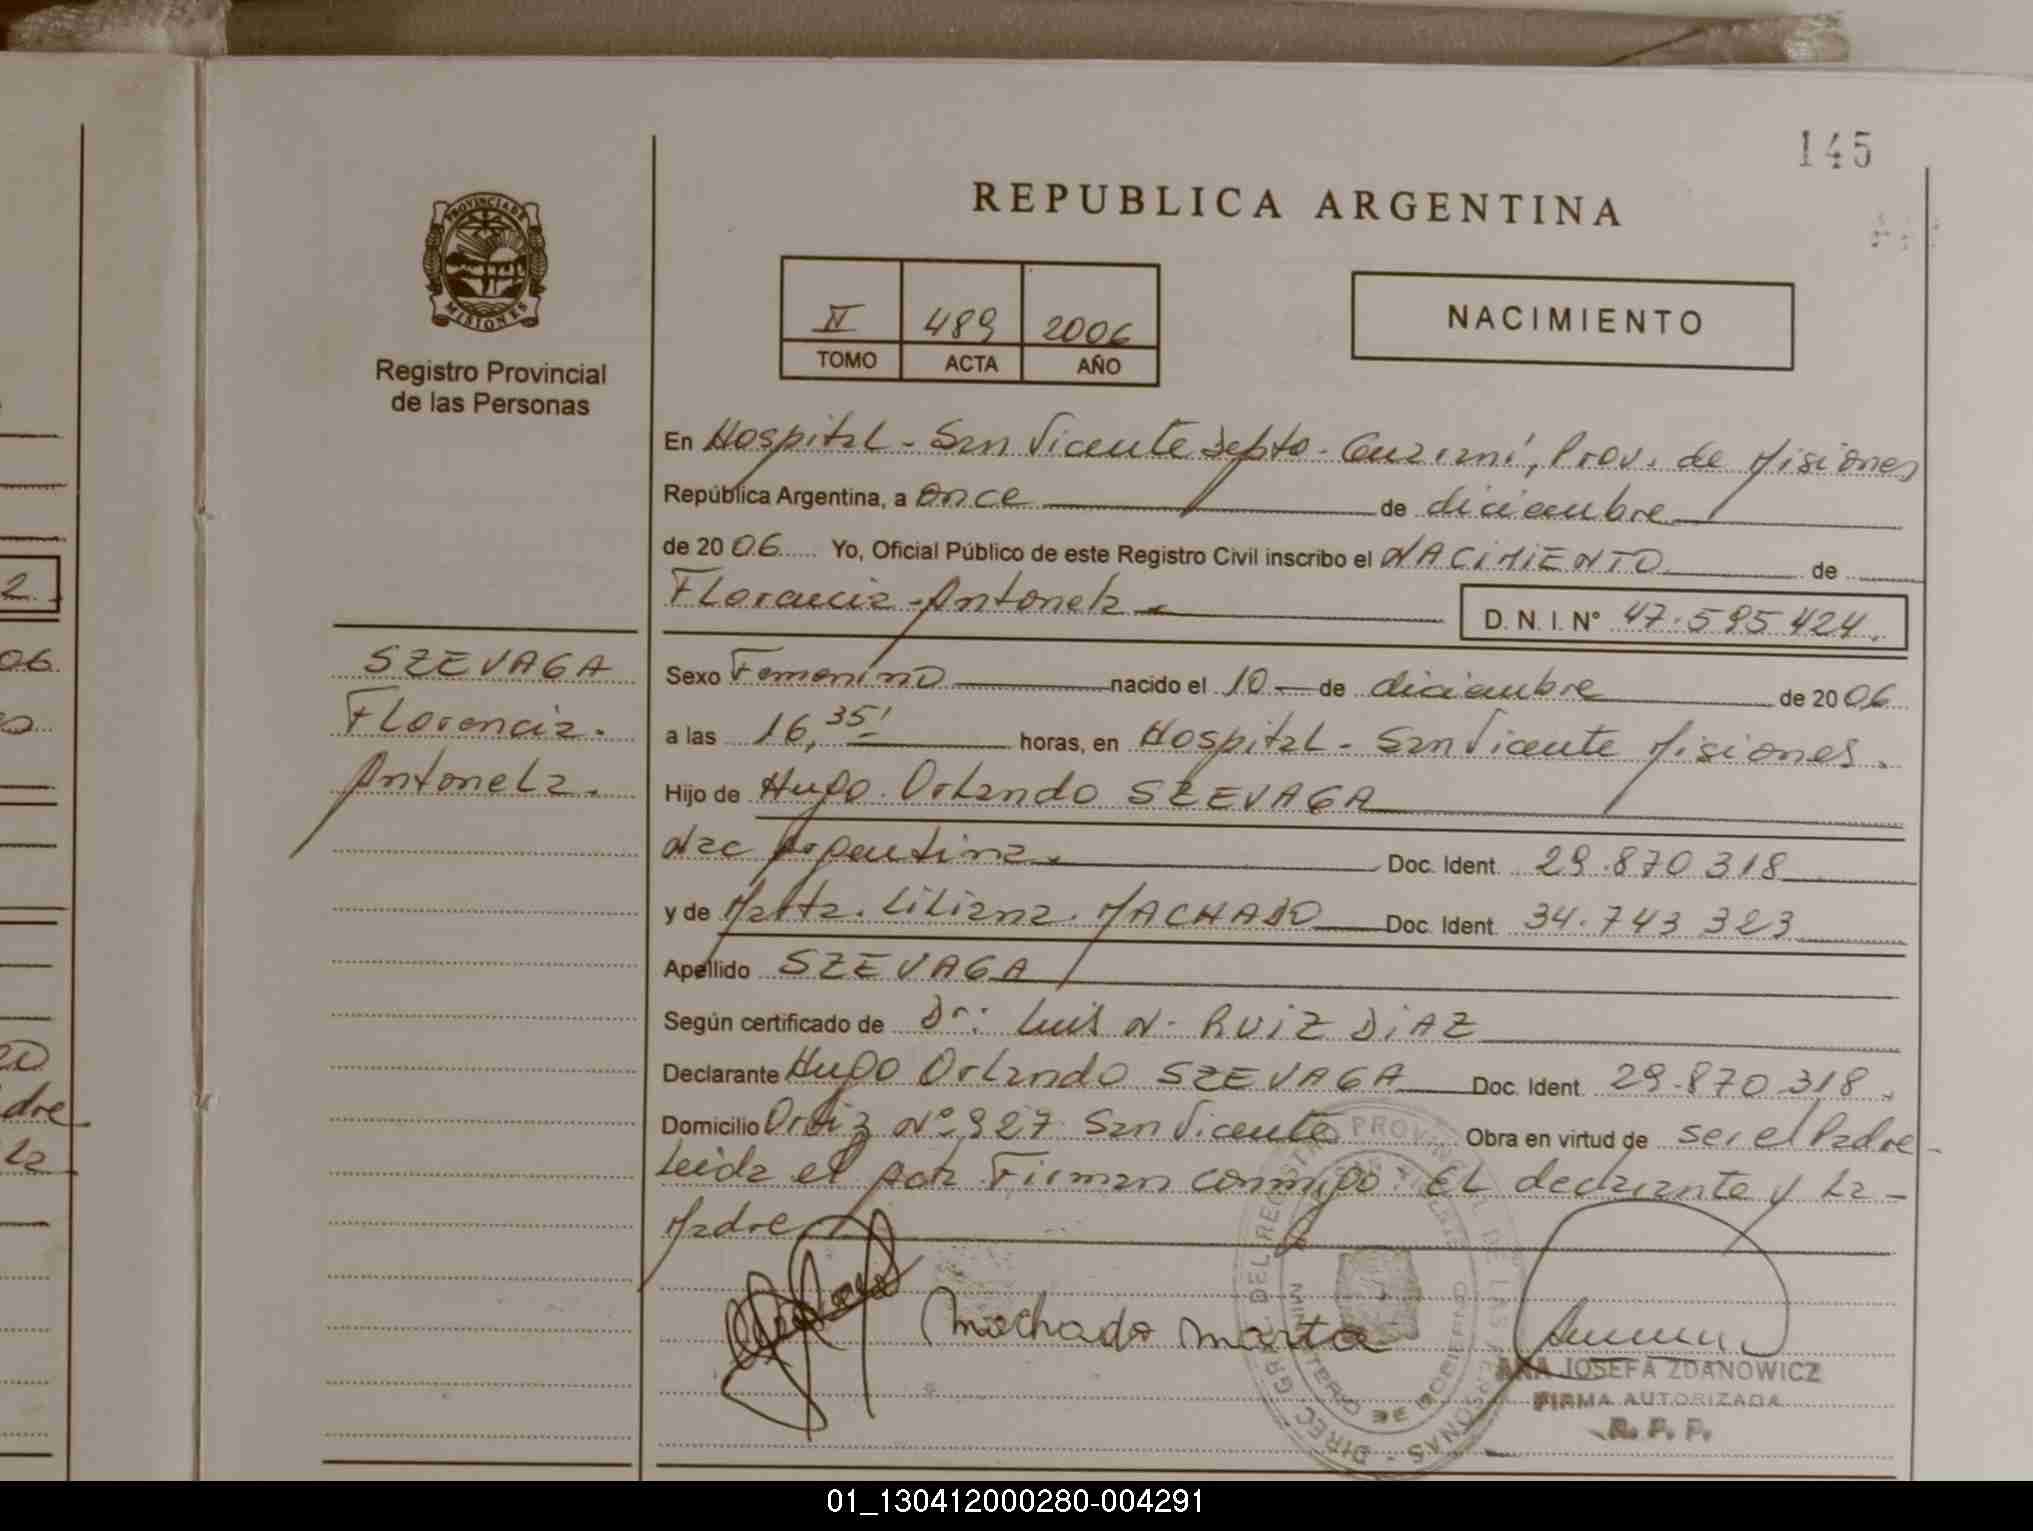 145
REPUBLICA ARGENTINA
PROVINCIA DE
MISIONES
Registro Provincial
de las Personas
II 489 2006
TOMO ACTA AÑO
NACIMIENTO
En Hospital - San Vicente Depto - Guaraní, Prov. de Misiones
República Argentina, a once de diciembre
de 2006 Yo, Oficial Público de este Registro Civil inscribo el NACIMIENTO de
Florencia - Antonela
D. N. I. N° 47.595 424.
SZEVAGA
Florencia.
Antonela.
Sexo Femenino nacido el 10 de diciembre de 2006
a las 16,35' horas, en Hospital - San Vicente Misiones.
Hijo de Hugo Orlando SZEVAGA
Nac Argentina. Doc. Ident. 29.870 318
y de Marta. Liliana. MACHADO Doc. Ident. 34.743 323
Apellido SZEVAGA
Según certificado de Dr: Luis N. RUIZ DIAZ
Declarante Hugo Orlando SZEVAGA Doc. Ident. 29.870 318.
Domicilio Ortiz N° 927 San Vicente Obra en virtud de ser el Padre -
Leida el Acta Firman conmigo. El declarante y La -
Madre
Machado Marta
DIREC. GRAL. DEL REGISTRO PROVINCIAL DE LAS PERSONAS
MINISTERIO DE GOBIERNO
ANA JOSEFA ZDANOWICZ
FIRMA AUTORIZADA
R. P. P.
2
06
dre
La
01_130412000280-004291